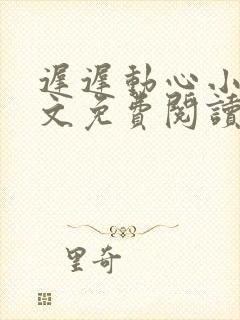 遲遲動心小
文免費閱讀
里奇